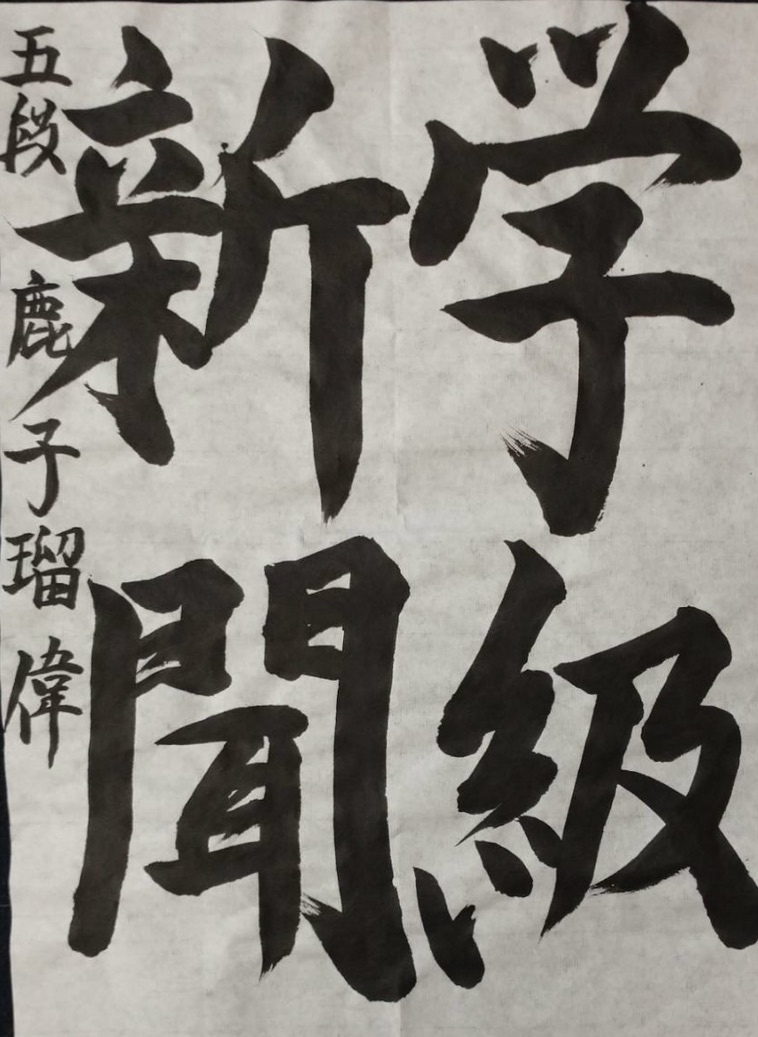 学級
新聞
五段 鹿子瑠偉